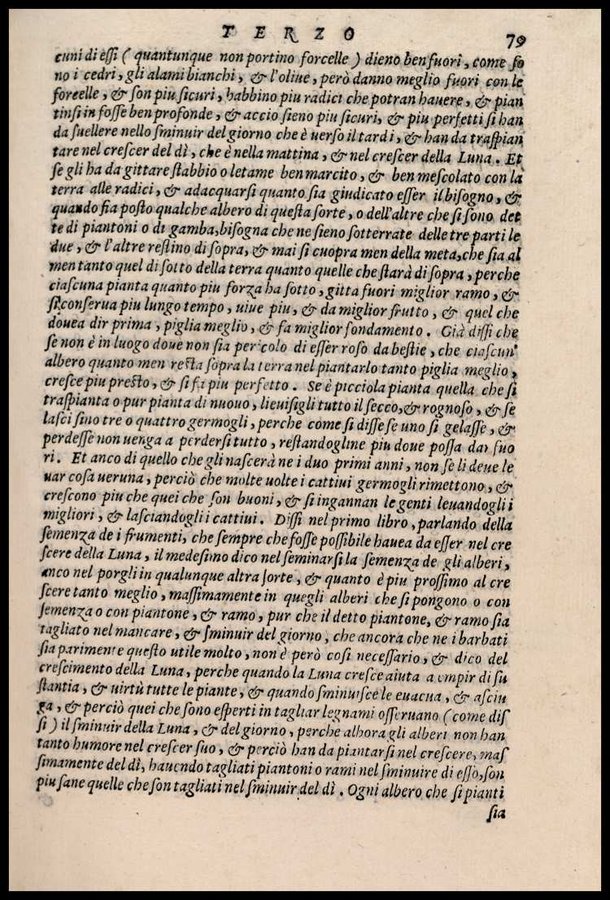 TERZO 79
cuni di essi ( quantunque non portino forcelle ) dieno ben fuori, come so
no i cedri, gli alami bianchi, & l'oliue, però danno meglio fuori con le
forcelle, & son piu sicuri, habbino piu radici che potran hauere, & pian
tinsi in fosse ben profonde, & accio sieno piu sicuri, & piu perfetti si han
da suellere nello sminuir del giorno che è verso il tardi, & han da traspian
tare nel crescer del dì, che è nella mattina, & nel crescer della Luna. Et
se gli ha da gittare stabbio o letame ben marcito, & ben mescolato con la
terra alle radici, & adacquarsi quanto sia giudicato esser il bisogno, &
quando sia posto qualche albero di questa sorte, o dell'altre che si sono det
te di piantoni o di gamba, bisogna che ne sieno sotterrate delle tre parti le
due, & l'altre restino di sopra, & mai si cuopra men della meta, che sia al
men tanto quel di sotto della terra quanto quelle che starà di sopra, perche
ciascuna pianta quanto piu forza ha sotto, gitta fuori miglior ramo, &
si conserua piu lungo tempo, uiue piu, & da miglior frutto, & quel che
douea dir prima, piglia meglio, & fa miglior fondamento. Già dissi che
se non è in luogo doue non sia pericolo di esser roso da bestie, che ciascun
albero quanto men resta sopra la terra nel piantarlo tanto piglia meglio,
cresce piu presto, & si fa piu perfetto. Se è picciola pianta quella che si
traspianta o pur pianta di nuouo, lieuisigli tutto il secco, & rognoso, & se
lasci sino tre o quattro germogli, perche come si disse se uno si gelasse, &
perdesse non uenga a perdersi tutto, restandogline piu doue possa dar fuo
ri. Et anco di quello che gli nascerà ne i duo primi anni, non se li deue le
uar cosa ueruna, perciò che molte uolte i cattiui germogli rimettono, &
crescono piu che quei che son buoni, & si ingannan le genti leuandogli i
migliori, & lasciandogli i cattiui. Dissi nel primo libro, parlando della
semenza de i frumenti, che sempre che fosse possibile hauea da esser nel cre
scere della Luna, il medesimo dico nel seminarsi la semenza de gli alberi,
anco nel porgli in qualunque altra sorte, & quanto è piu prossimo al cre
scere tanto meglio, massimamente in quegli alberi che si pongono o con
semenza o con piantone, & ramo, pur che il detto piantone, & ramo sia
tagliato nel mancare, & sminuir del giorno, che ancora che ne i barbati
sia parimente questo utile molto, non è però cosi necessario, & dico del
crescimento della Luna, perche quando la Luna cresce aiuta a empir di su
stantia, & uirtù tutte le piante, & quando sminuisce le euacua, & asciu
ga, & perciò quei che sono esperti in tagliar legnami osseruano (come dis
si) il sminuir della Luna, & del giorno, perche alhora gli alberi non han
tanto humore nel crescer suo, & perciò han da piantarsi nel crescere, mas
simamente del dì, hauendo tagliati piantoni o rami nel sminuire di esso, son
piu sane quelle che son tagliati nel sminuir del dì. Ogni albero che si pianti
sia